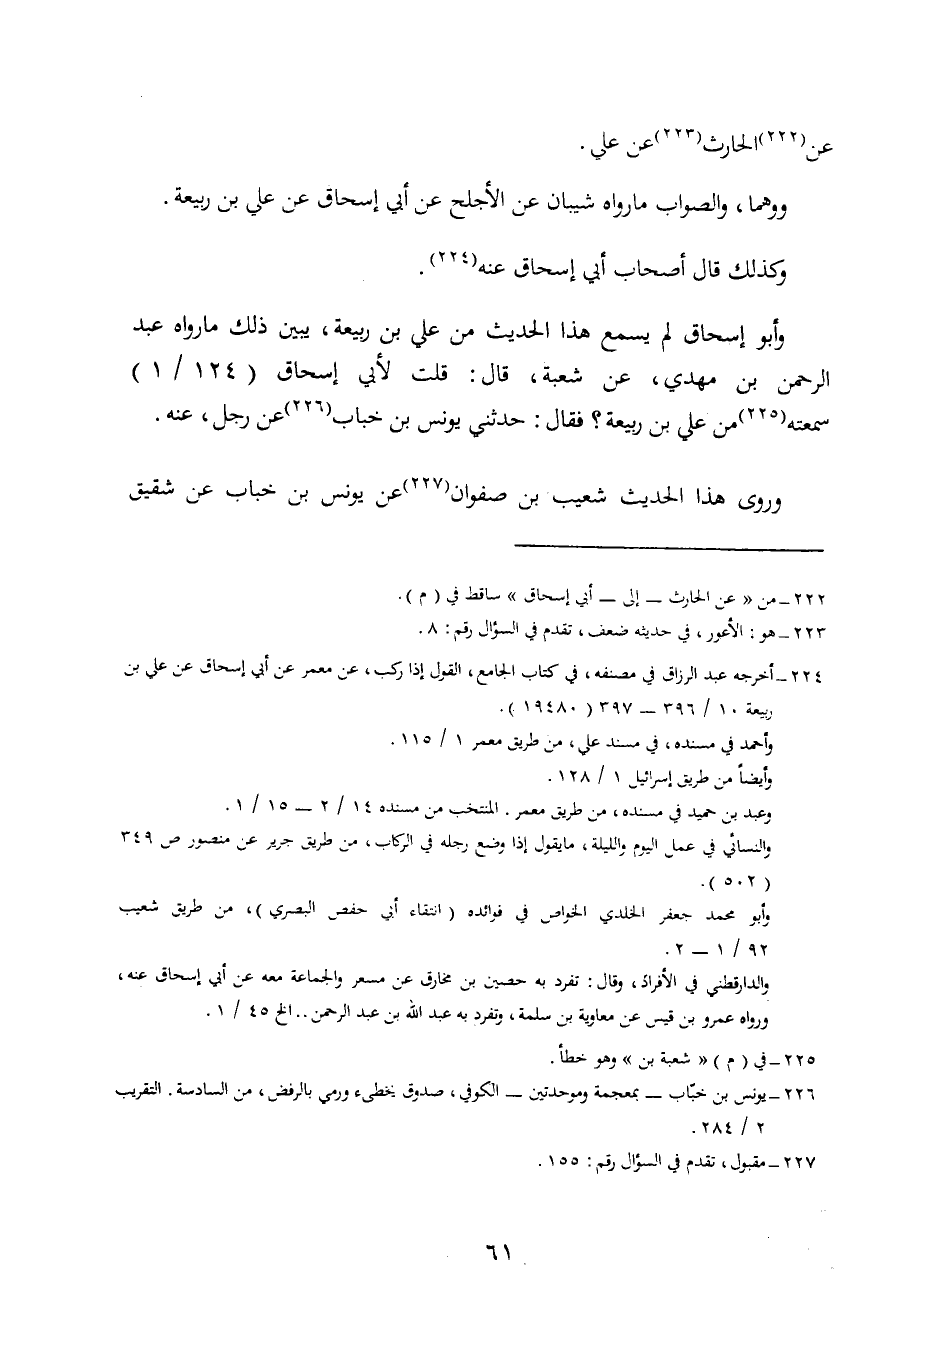 عن(٢٢٢)الحارث(٢٢٣)عن علي .
ووهما ، والصواب مارواه شيبان عن الأجلح عن أبي إسحاق عن علي بن ربيعة .
وكذلك قال أصحاب أبي إسحاق عنه(٢٢٤) .
وأبو إسحاق لم يسمع هذا الحديث من علي بن ربيعة ، يبين ذلك مارواه عبد
الرحمن بن مهدي ، عن شعبة ، قال : قلت لأبي إسحاق ( ١٢٤ / ١ )
سمعته(٢٢٥)من علي بن ربيعة ؟ فقال : حدثني يونس بن خباب(٢٢٦)عن رجل ، عنه .
وروى هذا الحديث شعيب بن صفوان(٢٢٧)عن يونس بن خباب عن شقيق
٢٢٢ ـ من « عن الحارث ــ إلى ــ أبي إسحاق » ساقط في ( م ) .
٢٢٣ ـ هو : الأعور ، في حديثه ضعف ، تقدم في السؤال رقم : ٨ .
٢٢٤ ـ أخرجه عبد الرزاق في مصنفه ، في كتاب الجامع ، القول إذا ركب ، عن معمر عن أبي إسحاق عن علي بن
ربيعة ١٠ / ٣٩٦ ــ ٣٩٧ ( ١٩٤٨٠ ) .
وأحمد في مسنده ، في مسند علي ، من طريق معمر ١ / ١١٥ .
وأيضاً من طريق إسرائيل ١ / ١٢٨ .
وعبد بن حميد في مسنده ، من طريق معمر . المنتخب من مسنده ١٤ / ٢ ــ ١٥ / ١ .
والنسائي في عمل اليوم والليلة ، مايقول إذا وضع رجله في الركاب ، من طريق جرير عن منصور ص ٣٤٩
( ٥٠٢ ) .
وأبو محمد جعفر الخلدي الخواص في فوائده ( انتقاء أبي حفص البصري ) ، من طريق شعيب
٩٢ / ١ ــ ٢ .
والدارقطني في الأفراد ، وقال : تفرد به حصين بن مخارق عن مسعر والجماعة معه عن أبي إسحاق عنه ،
ورواه عمرو بن قيس عن معاوية بن سلمة ، وتفرد به عبد الله بن عبد الرحمن .. الخ ٤٥ / ١ .
٢٢٥ ـ في ( م ) « شعبة بن » وهو خطأ .
٢٢٦ ـ يونس بن خبّاب ــ بمعجمة وموحدتين ــ الكوفي ، صدوق يخطىء ورمي بالرفض ، من السادسة . التقريب
٢ / ٢٨٤ .
٢٢٧ ـ مقبول ، تقدم في السؤال رقم : ١٥٥ .
٦١